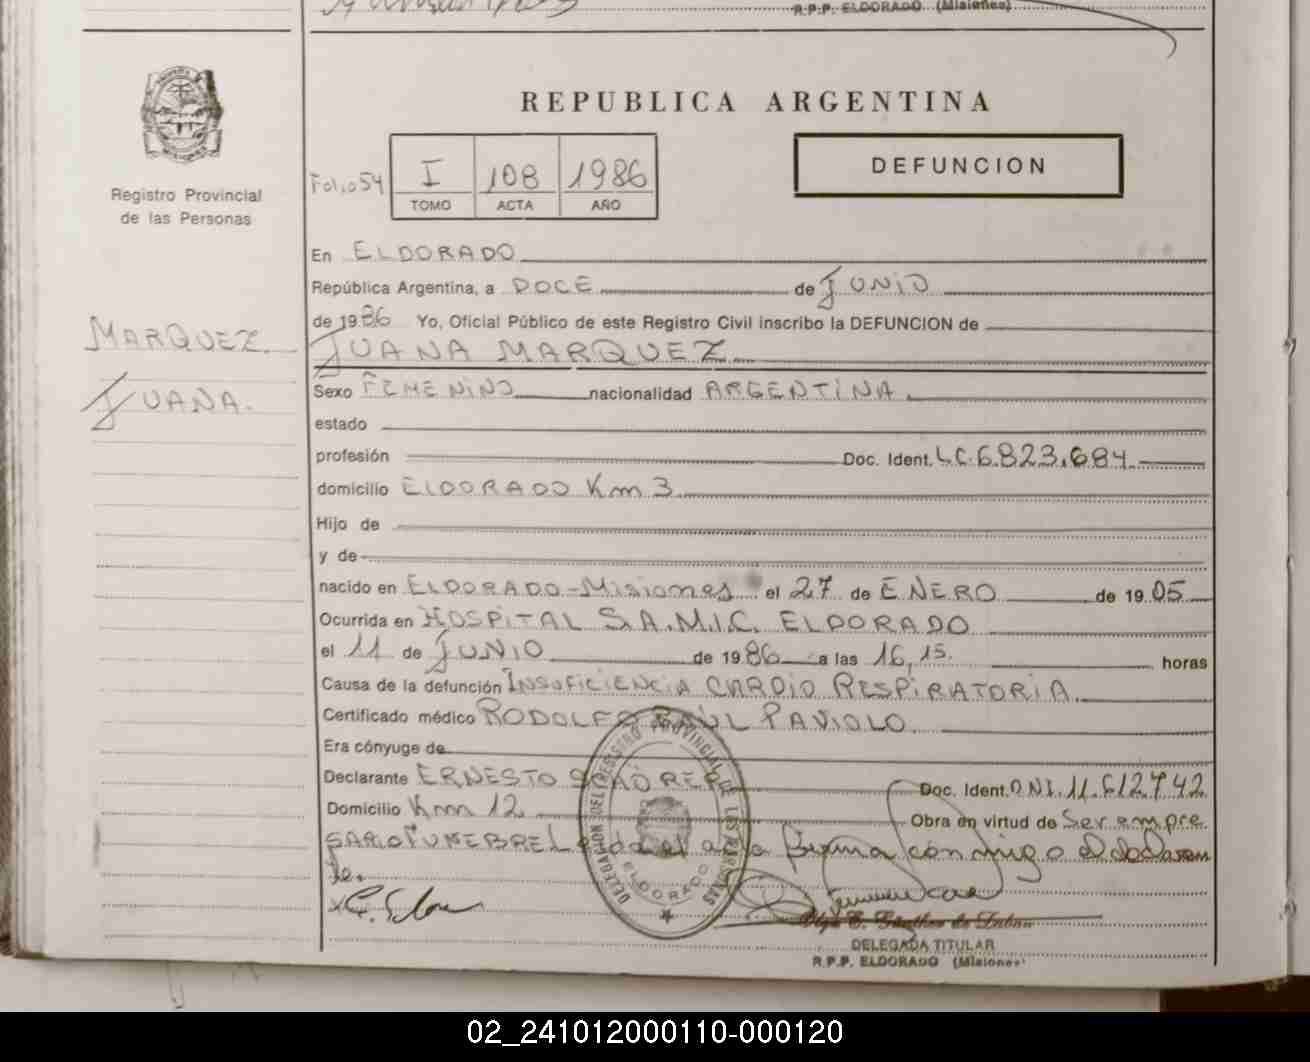 R.P.P. ELDORADO (Misiones)
REPUBLICA ARGENTINA
DEFUNCION
Folio 54
I 108 1986
TOMO ACTA AÑO
Registro Provincial
de las Personas
MARQUEZ
JUANA.
En ELDORADO
República Argentina, a DOCE de JUNIO
de 1986 Yo, Oficial Público de este Registro Civil inscribo la DEFUNCION de
JUANA MARQUEZ
Sexo FEMENINO nacionalidad ARGENTINA
estado
profesión Doc. Ident. LC 6.823.684
domicilio ELDORADO Km 3
Hijo de
y de
nacido en ELDORADO-Misiones el 27 de ENERO de 1905
Ocurrida en HOSPITAL S.A.M.I.C. ELDORADO
el 11 de JUNIO de 1986 a las 16,15. horas
Causa de la defunción INSUFICIENCIA CARDIO RESPIRATORIA
Certificado médico RODOLFO RAUL PAVIOLO
Era cónyuge de
Declarante ERNESTO Doc. Ident. DNI. 11.612.742
Domicilio Km 12 Obra en virtud de Ser empre
SARIO FUNEBRE Leida el acta firma conmigo el declaran
te.
DELEGACION DEL REGISTRO PROVINCIAL DE LAS PERSONAS
ELDORADO
Olga E. Günther de
DELEGADA TITULAR
R.P.P. ELDORADO (Misiones)
02_241012000110-000120